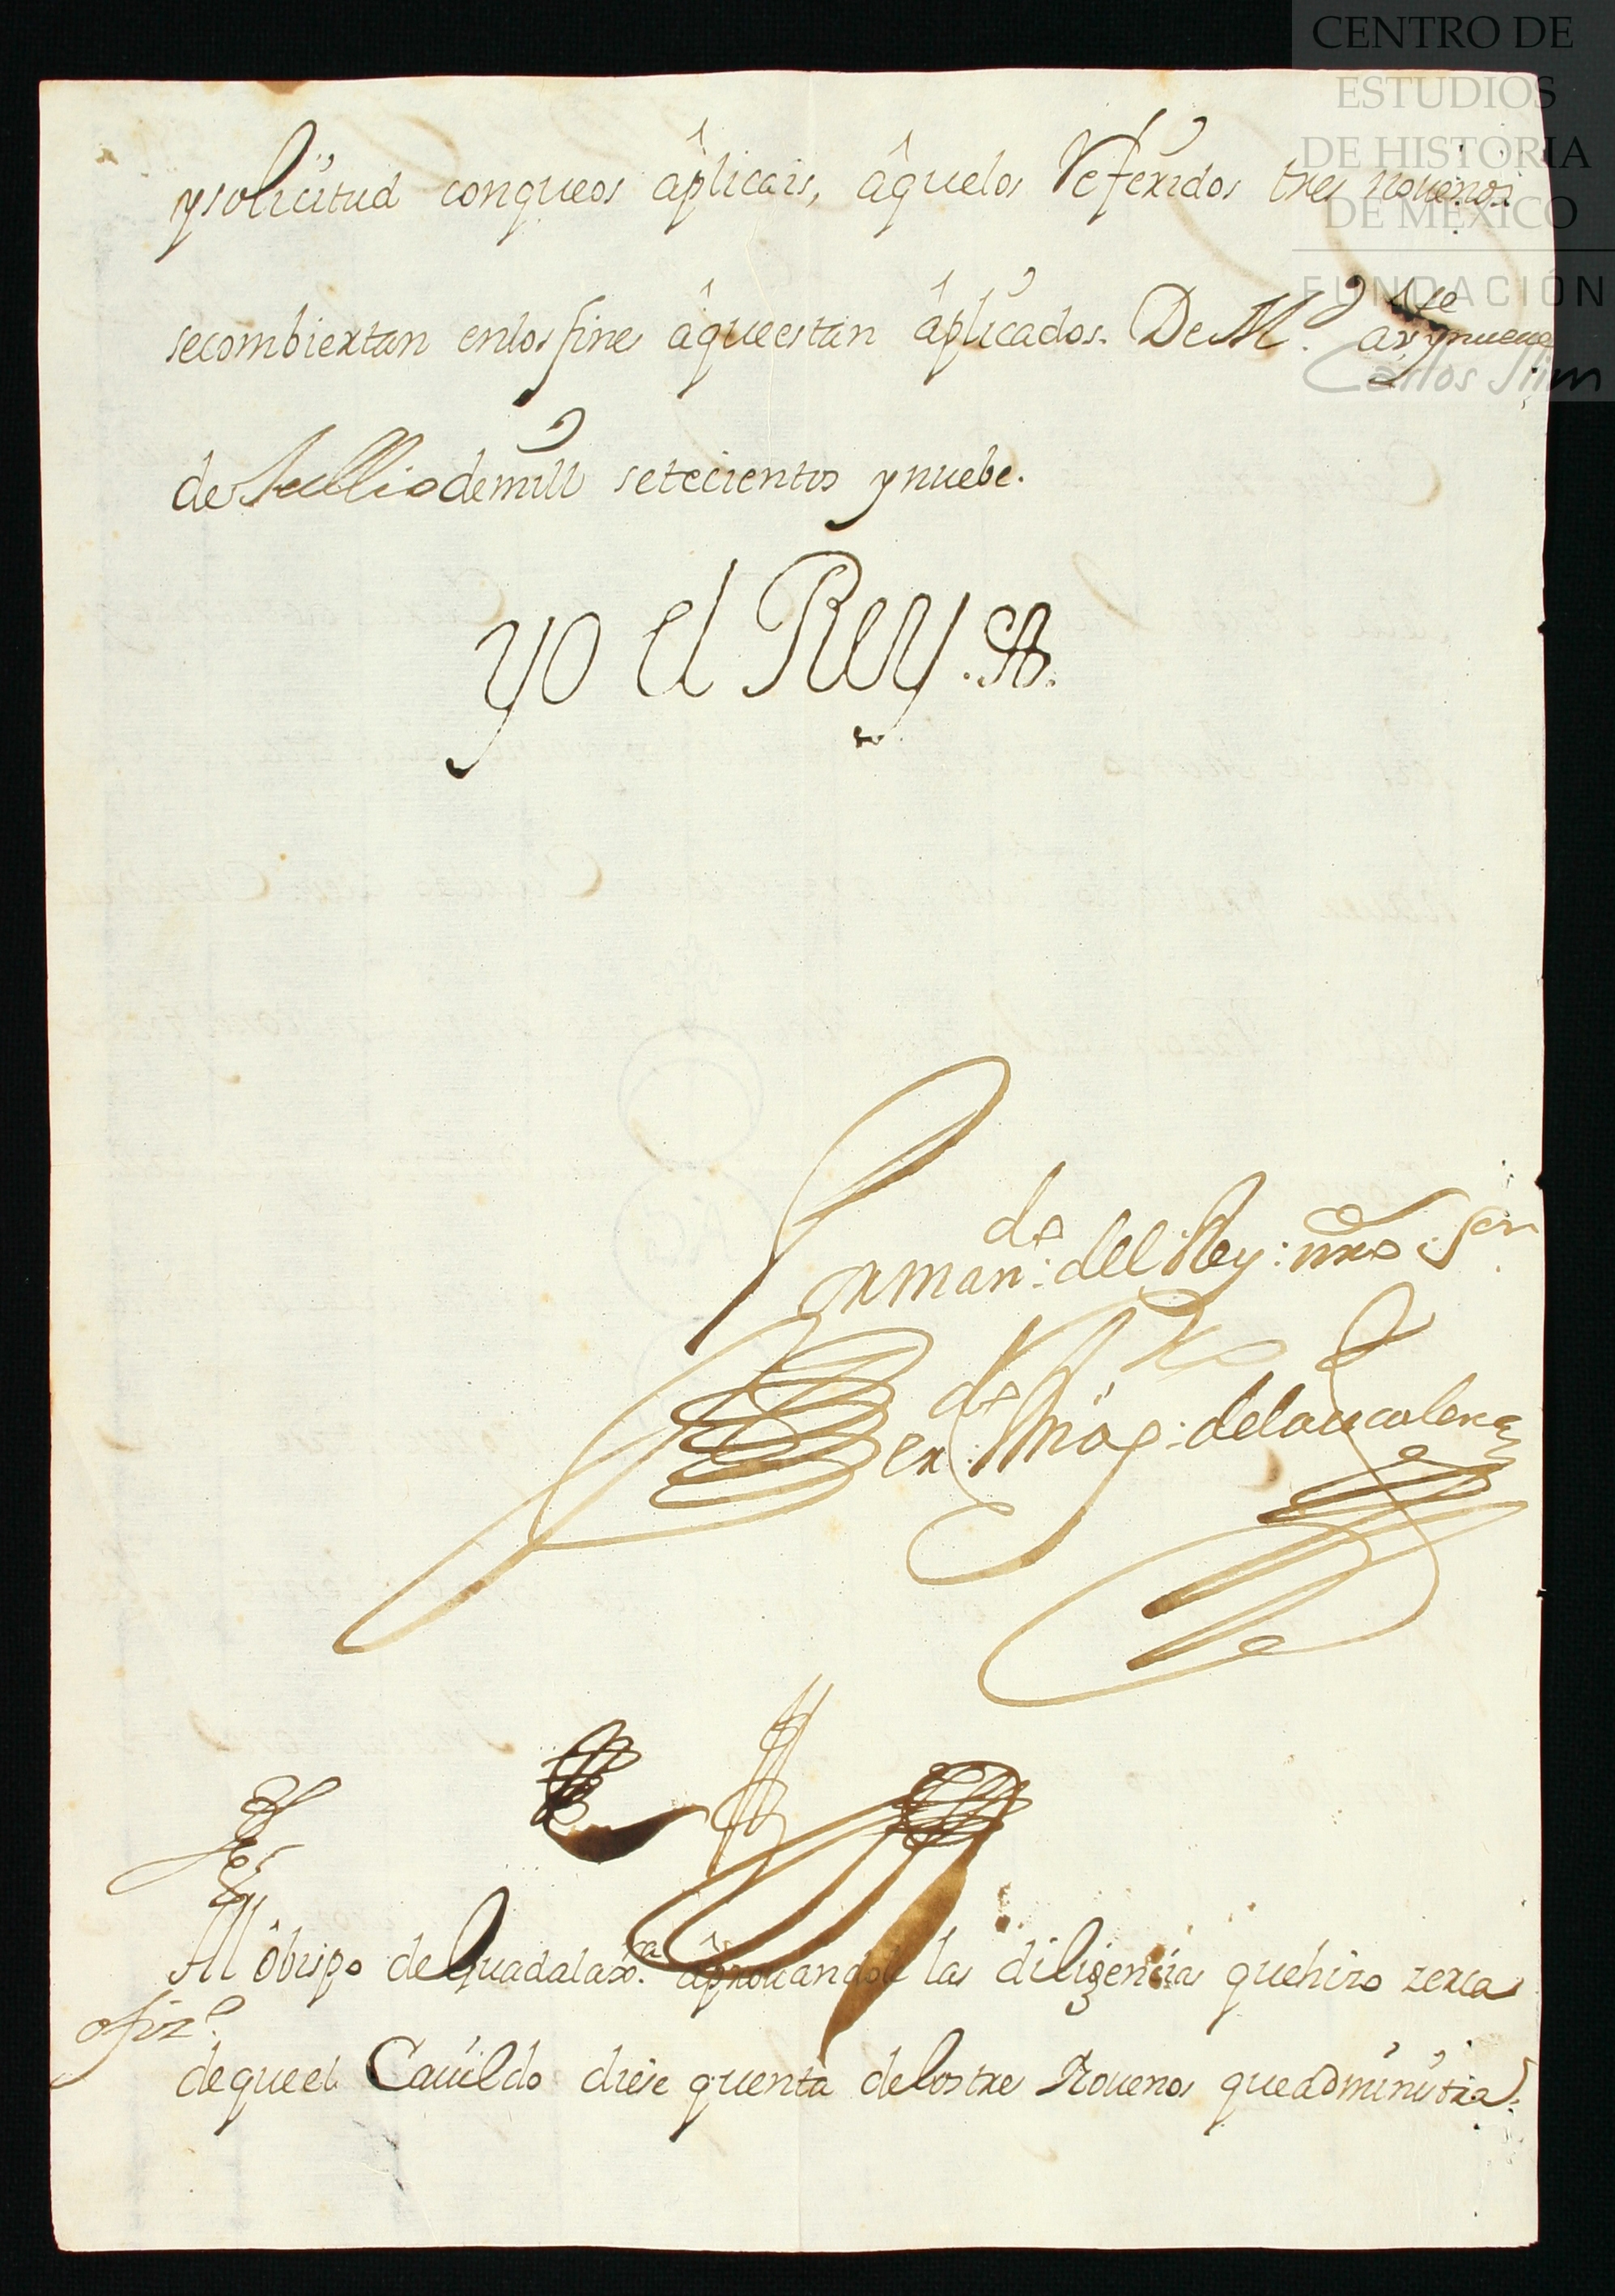 CENTRO DE
ESTUDIOS
DE HISTORIA
DE MÉXICO
FUNDACIÓN
Carlos Slim
y solicitud conqueos âplicais, âquelos Referidos tres novenos
secombiertan enlos fines âqueestan âplicados. De M.d a ynueve
de Jullio demill setecientos ynuebe.
yo el Rey.
Por man:do del Rey: nro Senr
Bern:do Tinag:ro dela escalera
Al ôbispo de Guadalax.a âprouandole las diligencias quehizo zerca
ofiz.o
dequeel Cauildo diese quenta delostres Nouenos queadministra.